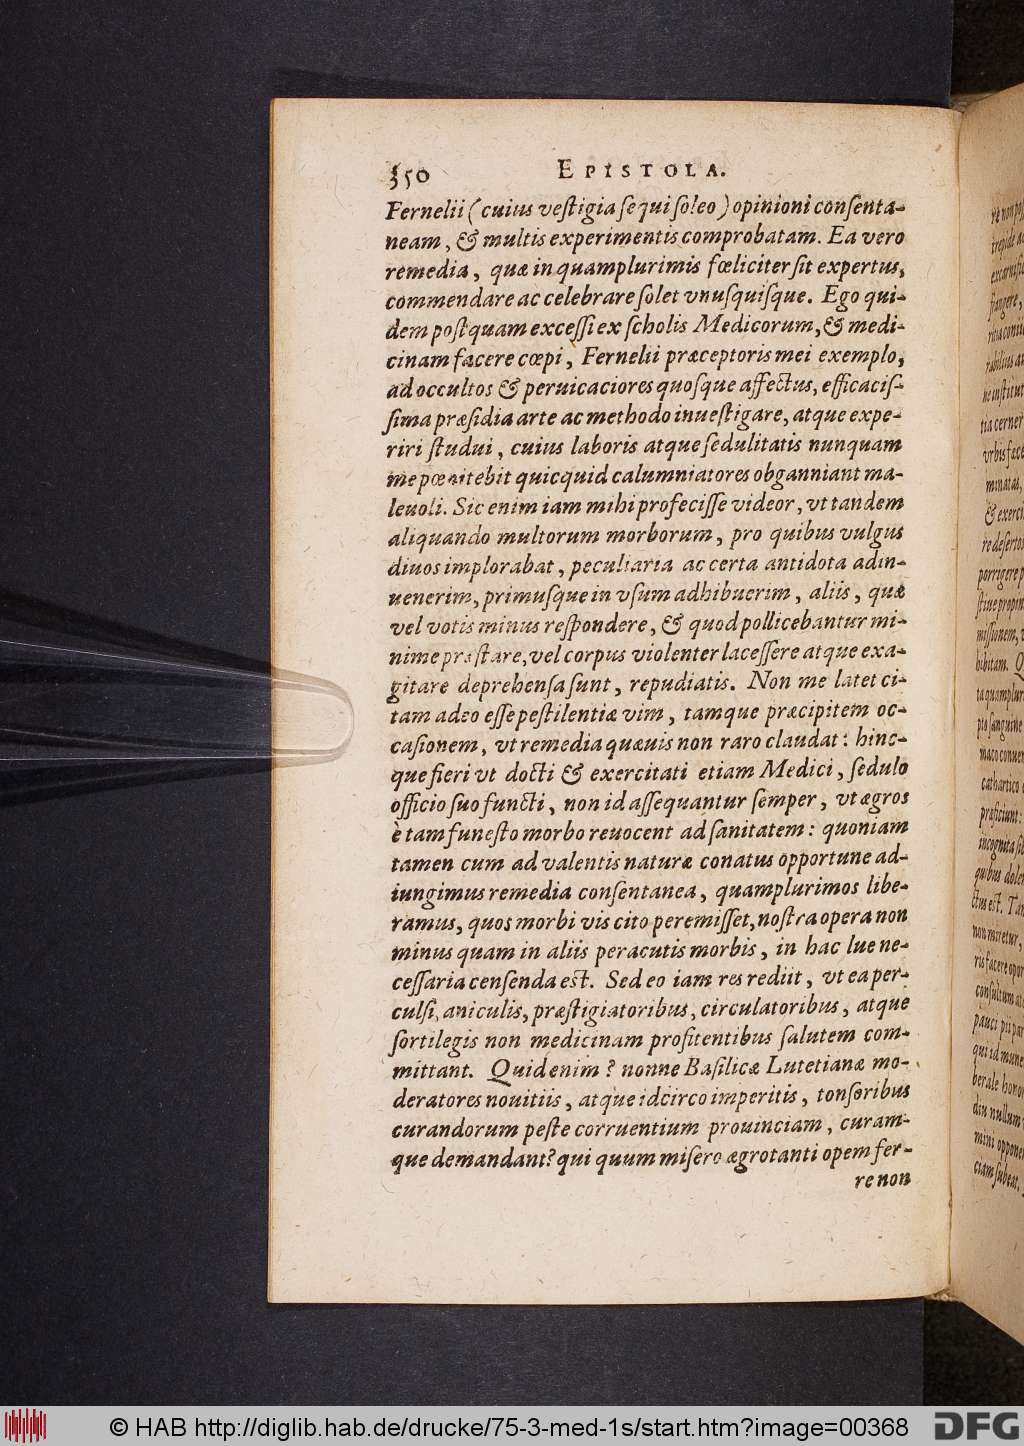 350 EPISTOLA.
Fernelii (cuius vestigia sequi soleo) opinioni consenta-
neam, & multis experimentis comprobatam. Ea vero
remedia, quæ in quamplurimis fœliciter sit expertus,
commendare ac celebrare solet vnusquisque. Ego qui-
dem postquam excessi ex scholis Medicorum, & medi-
cinam facere cœpi, Fernelii præceptoris mei exemplo,
ad occultos & peruicaciores quosque affectus, efficacis-
sima præsidia arte ac methodo inuestigare, atque expe-
riri studui, cuius laboris atque sedulitatis nunquam
me pœnitebit quicquid calumniatores obganniant ma-
leuoli. Sic enim iam mihi profecisse videor, vt tandem
aliquando multorum morborum, pro quibus vulgus
diuos implorabat, peculiaria ac certa antidota adin-
uenerim, primusque in vsum adhibuerim, aliis, quæ
vel votis minus respondere, & quod pollicebantur mi-
nime præstare, vel corpus violenter lacessere atque exa-
gitare deprehensa sunt, repudiatis. Non me latet ci-
tam adeo esse pestilentiæ vim, tamque præcipitem oc-
casionem, vt remedia quæuis non raro claudat: hinc-
que fieri vt docti & exercitati etiam Medici, sedulo
officio suo functi, non id assequantur semper, vt ægros
è tam funesto morbo reuocent ad sanitatem: quoniam
tamen cum ad valentis naturæ conatus opportune ad-
iungimus remedia consentanea, quamplurimos libe-
ramus, quos morbi vis cito peremisset, nostra opera non
minus quam in aliis peracutis morbis, in hac lue ne-
cessaria censenda est. Sed eo iam res rediit, vt ea per-
culsi, aniculis, præstigiatoribus, circulatoribus, atque
sortilegis non medicinam profitentibus salutem com-
mittant. Quid enim? nonne Basilicæ Lutetianæ mo-
deratores nouitiis, atque idcirco imperitis, tonsoribus
curandorum peste corruentium prouinciam, curam-
que demandant? qui quum misero ægrotanti opem fer-
re non
© HAB http://diglib.hab.de/drucke/75-3-med-1s/start.htm?image=00368
DFG